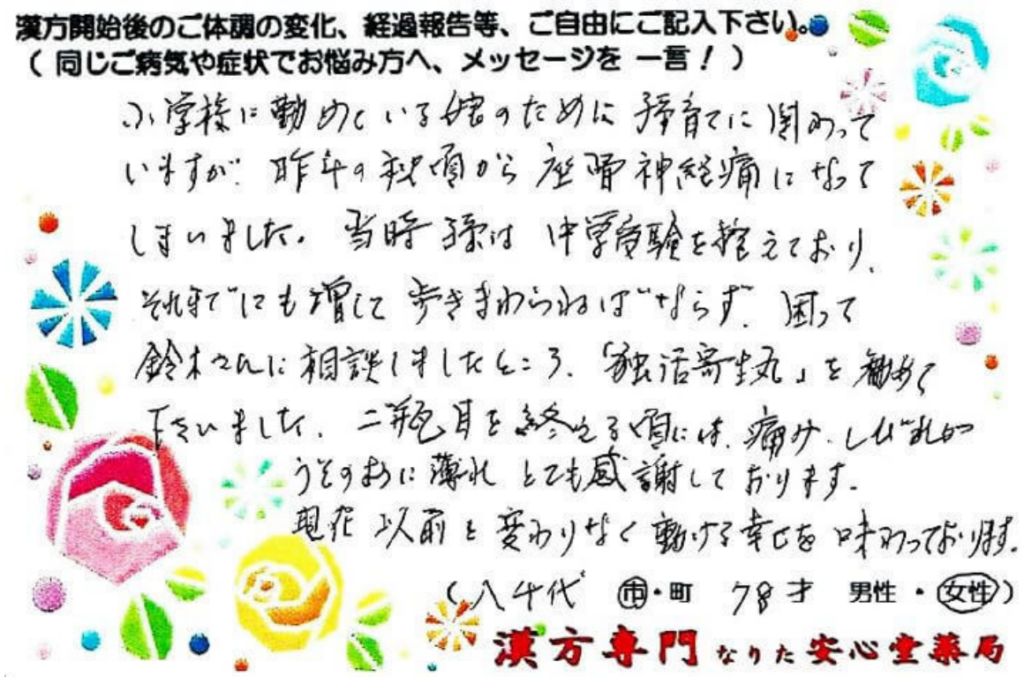 漢方開始後のご体調の変化、経過報告等、ご自由にご記入下さい。
( 同じご病気や症状でお悩み方へ、メッセージを 一言! )
小学校に勤めている娘のために孫育てに関わって
いますが、昨年の秋頃から座骨神経痛になって
しまいました。当時孫は中学受験を控えており、
それまでにも増して歩きまわらねばならず、困って
鈴木さんに相談しましたところ、「独活寄生丸」を勧めて
下さいました。二瓶目を終える頃には、痛み、しびれが
うそのように薄れとても感謝しております。
現在以前と変わりなく動ける幸せを味わっております。
(八千代 市・町 78才 男性・女性)
漢方専門 なりた安心堂薬局